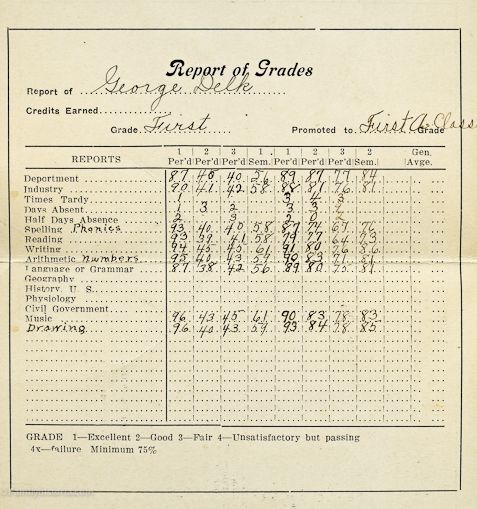 Report of Grades
Report of George Delk
Credits Earned
Grade First Promoted to First A Class Grade
REPORTS 1 Per'd 2 Per'd 3 Per'd 1 Sem. 1 Per'd 2 Per'd 3 Per'd 2 Sem. Gen. Avge.
Department 87 40 40 89 87 77 84
Industry 90 41 42 58 88 87 76 81
Times Tardy 1 3 4 3
Days Absent 1 3 2 3 3
Half Days Absence 2 3 2 0 2
Spelling Phonics 93 40 40 58 87 74 67 76
Reading 93 39 41 58 77 64 73
Writing 94 45 45 61 91 80
Arithmetic numbers 95 40 43 59 90 83 71 81
Language or Grammar 87 38 42 56 89 80 75 81
Geography
History, U. S.
Physiology
Civil Government
Music 96 43 45 61 90 83 78 83
Drawing 96 40 43 59 93 84 78 85
GRADE 1—Excellent 2—Good 3—Fair 4—Unsatisfactory but passing
4x—failure Minimum 75%